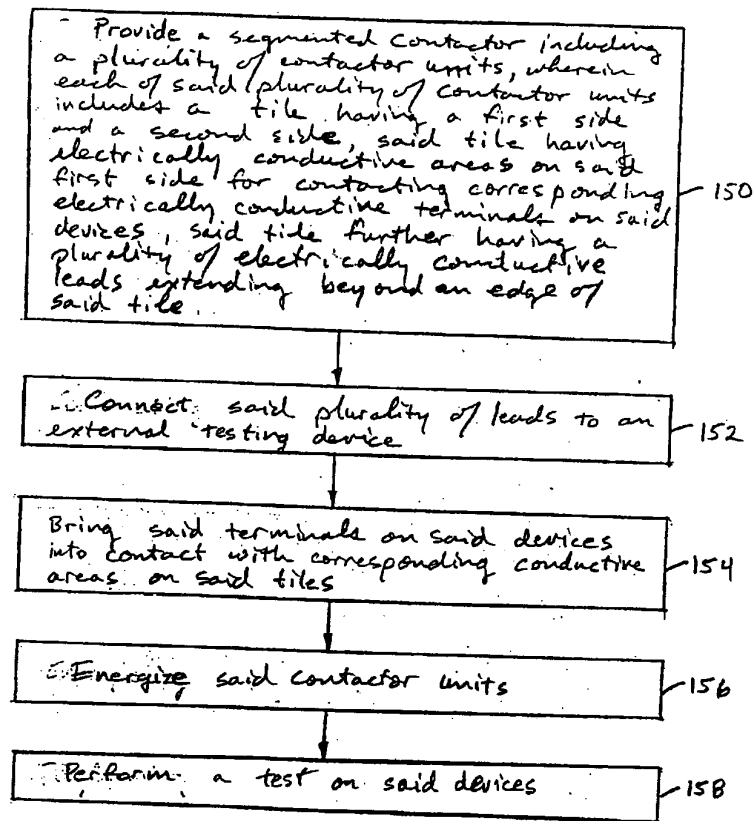 Provide a segmented contactor including
a plurality of contactor units, wherein
each of said plurality of contactor units
includes a tile having a first side
and a second side, said tile having
electrically conductive areas on said
first side for contacting corresponding
electrically conductive terminals on said
devices, said tile further having a
plurality of electrically conductive
leads extending beyond an edge of
said tile.
150
Connect said plurality of leads to an
external testing device
152
Bring said terminals on said devices
into contact with corresponding conductive
areas on said tiles
154
Energize said contactor units
156
Perform a test on said devices
158